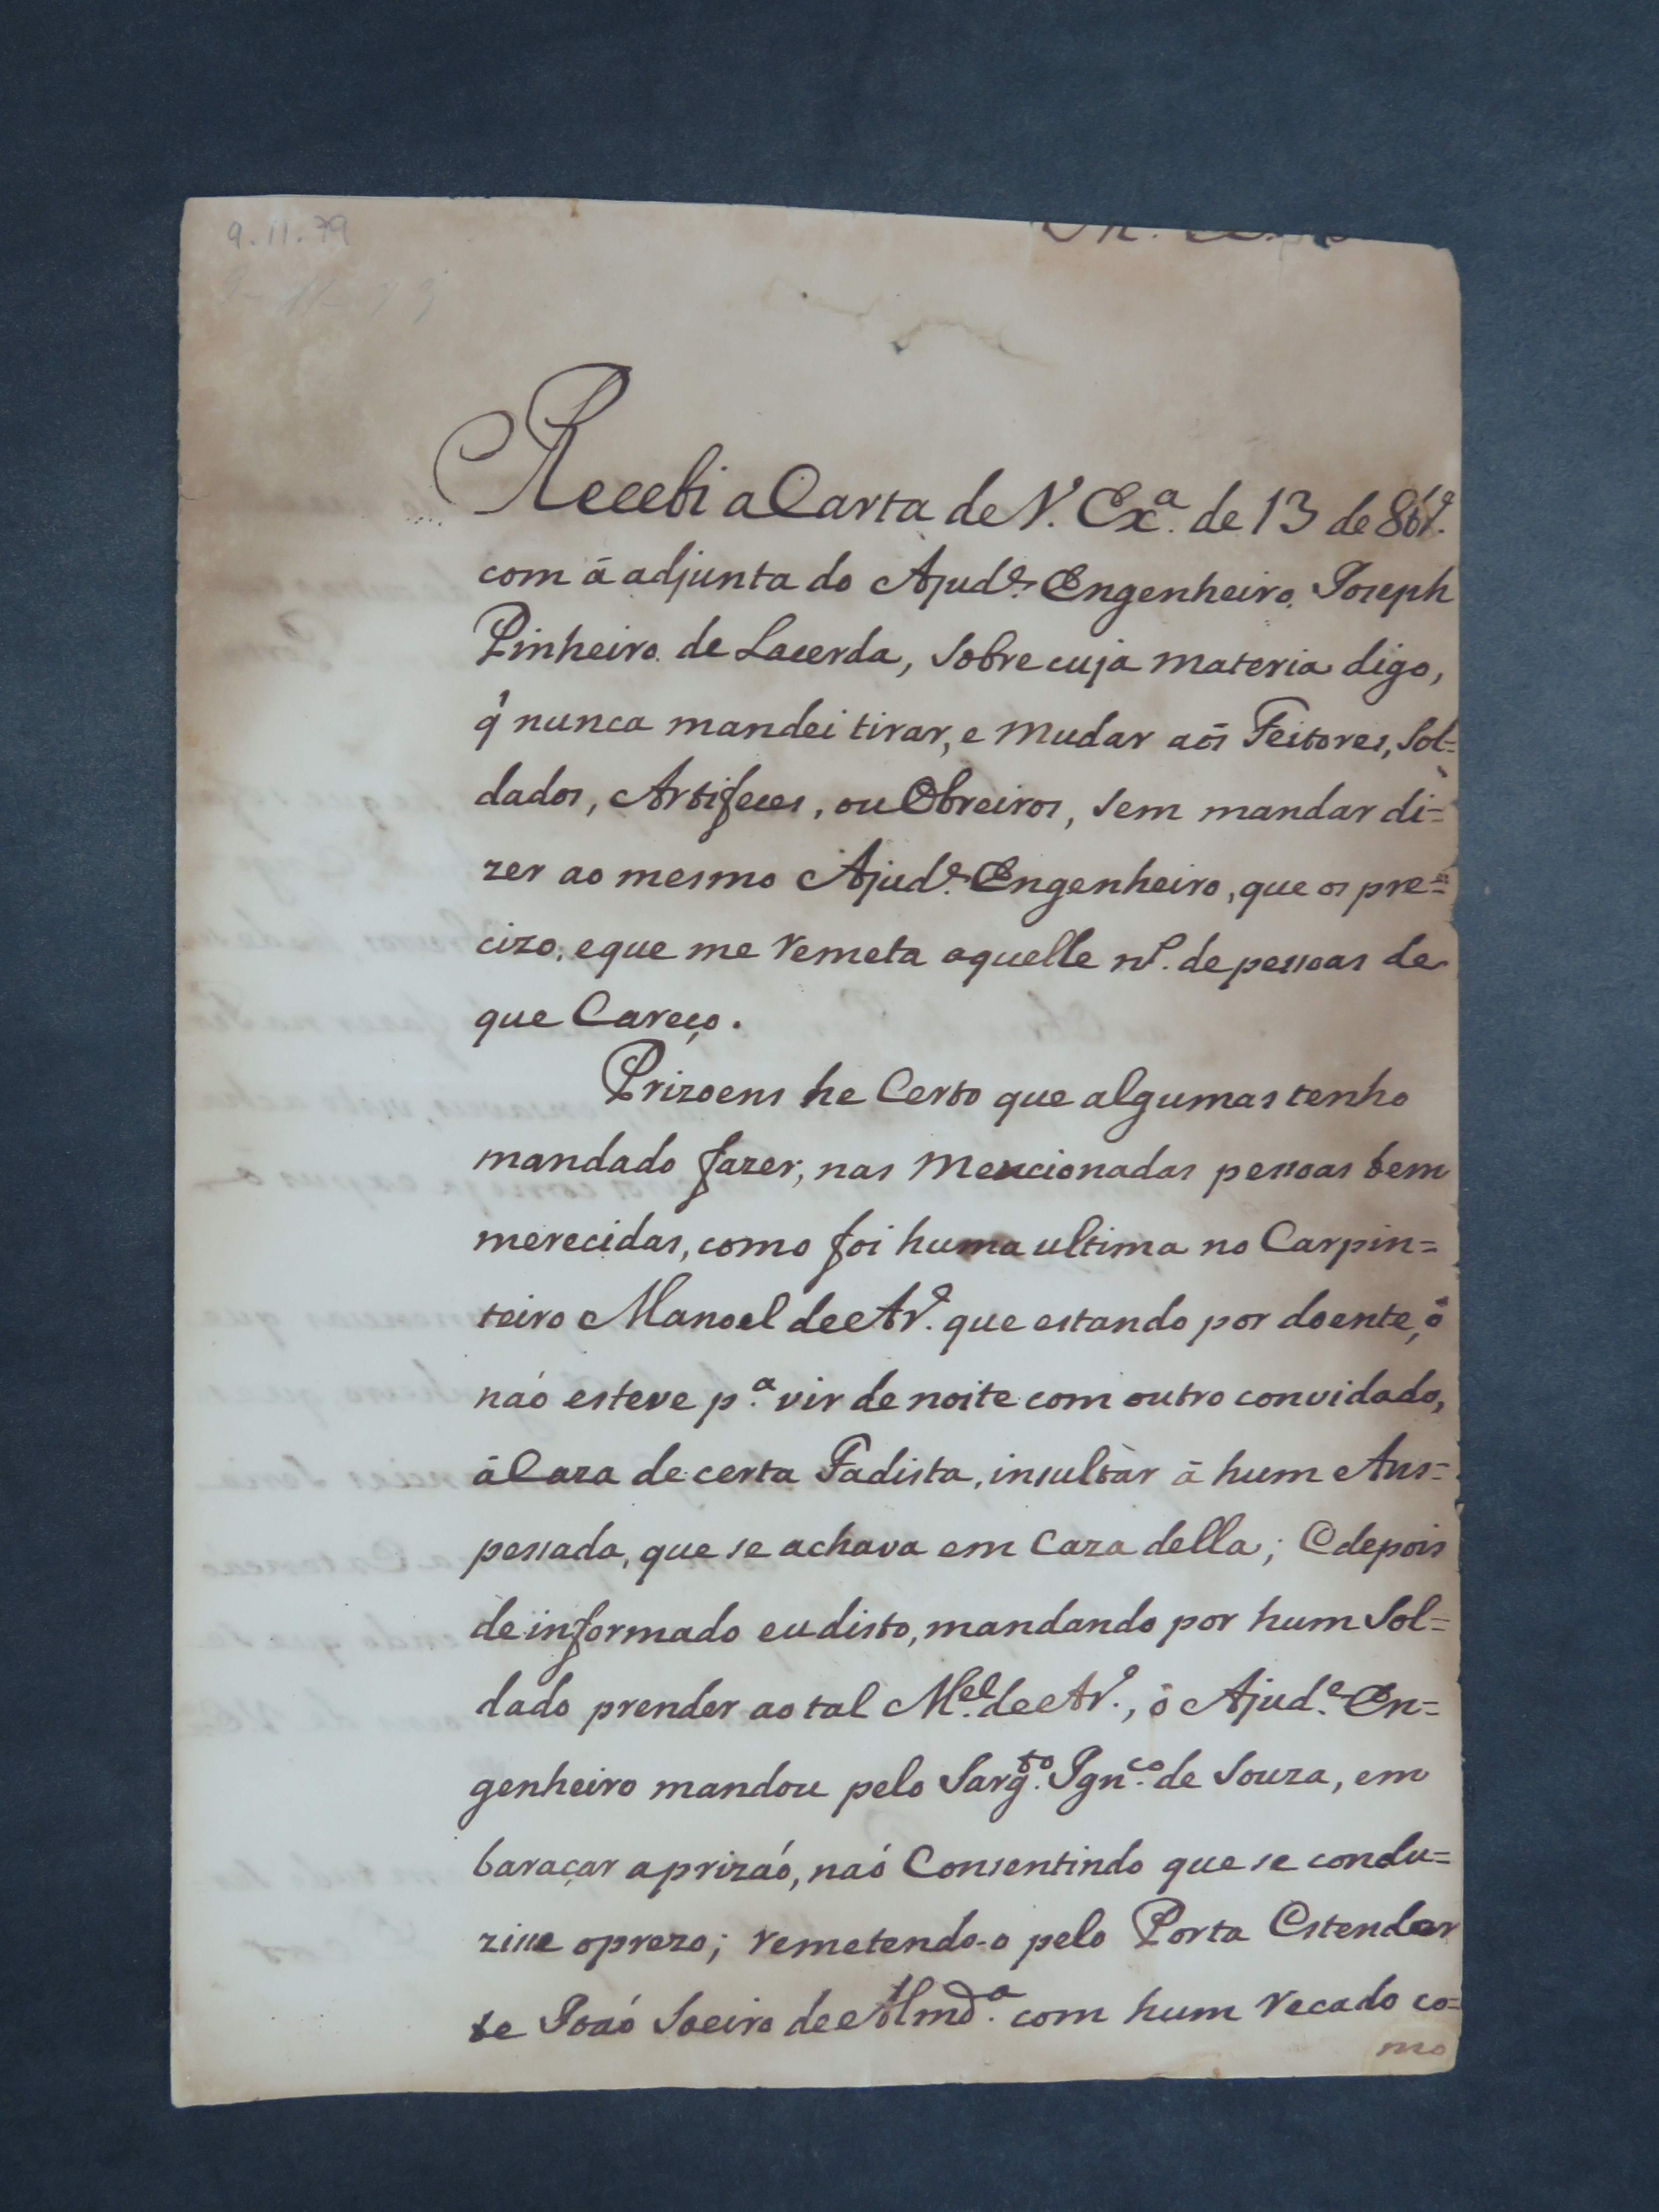 9.11.79
9-11-79
Recebi a Carta de V. Exª. de 13 de 8brº.
com ã adjunta do Ajudᵉ. Engenheiro, Joseph
Pinheiro de Lacerda, sobre cuja materia digo,
q̃ nunca mandei tirar, e mudar aõs Feitores, Sol=
dados, Artifeces, ou Obreiros, sem mandar di=
zer ao mesmo Ajudᵉ. Engenheiro, que os pre=
cizo, e que me remeta aquelle nº. de pessoas de
que Careço.
Prizoens he Certo que algumas tenho
mandado fazer, nas mencionadas pessoas bem
merecidas, como foi huma ultima no Carpin=
teiro Manoel de Arº. que estando por doente, õ
naó esteve pª. vir de noite com outro convidado,
ã Caza de certa Fadista, insultar ã hum Ans=
pessada, que se achava em Caza della; E depois
de informado eu disto, mandando por hum Sol=
dado prender ao tal Mᵉˡ. de Arº., õ Ajudᵉ. En=
genheiro mandou pelo Sargᵗᵒ. Ignᶜᵒ. de Souza, em
baraçar a prizaó, naó Consentindo que se condu=
zisse o prezo; remetendo-o pelo Porta Estendar
te Joaó Soeiro de Almdª. com hum recado co=
mo